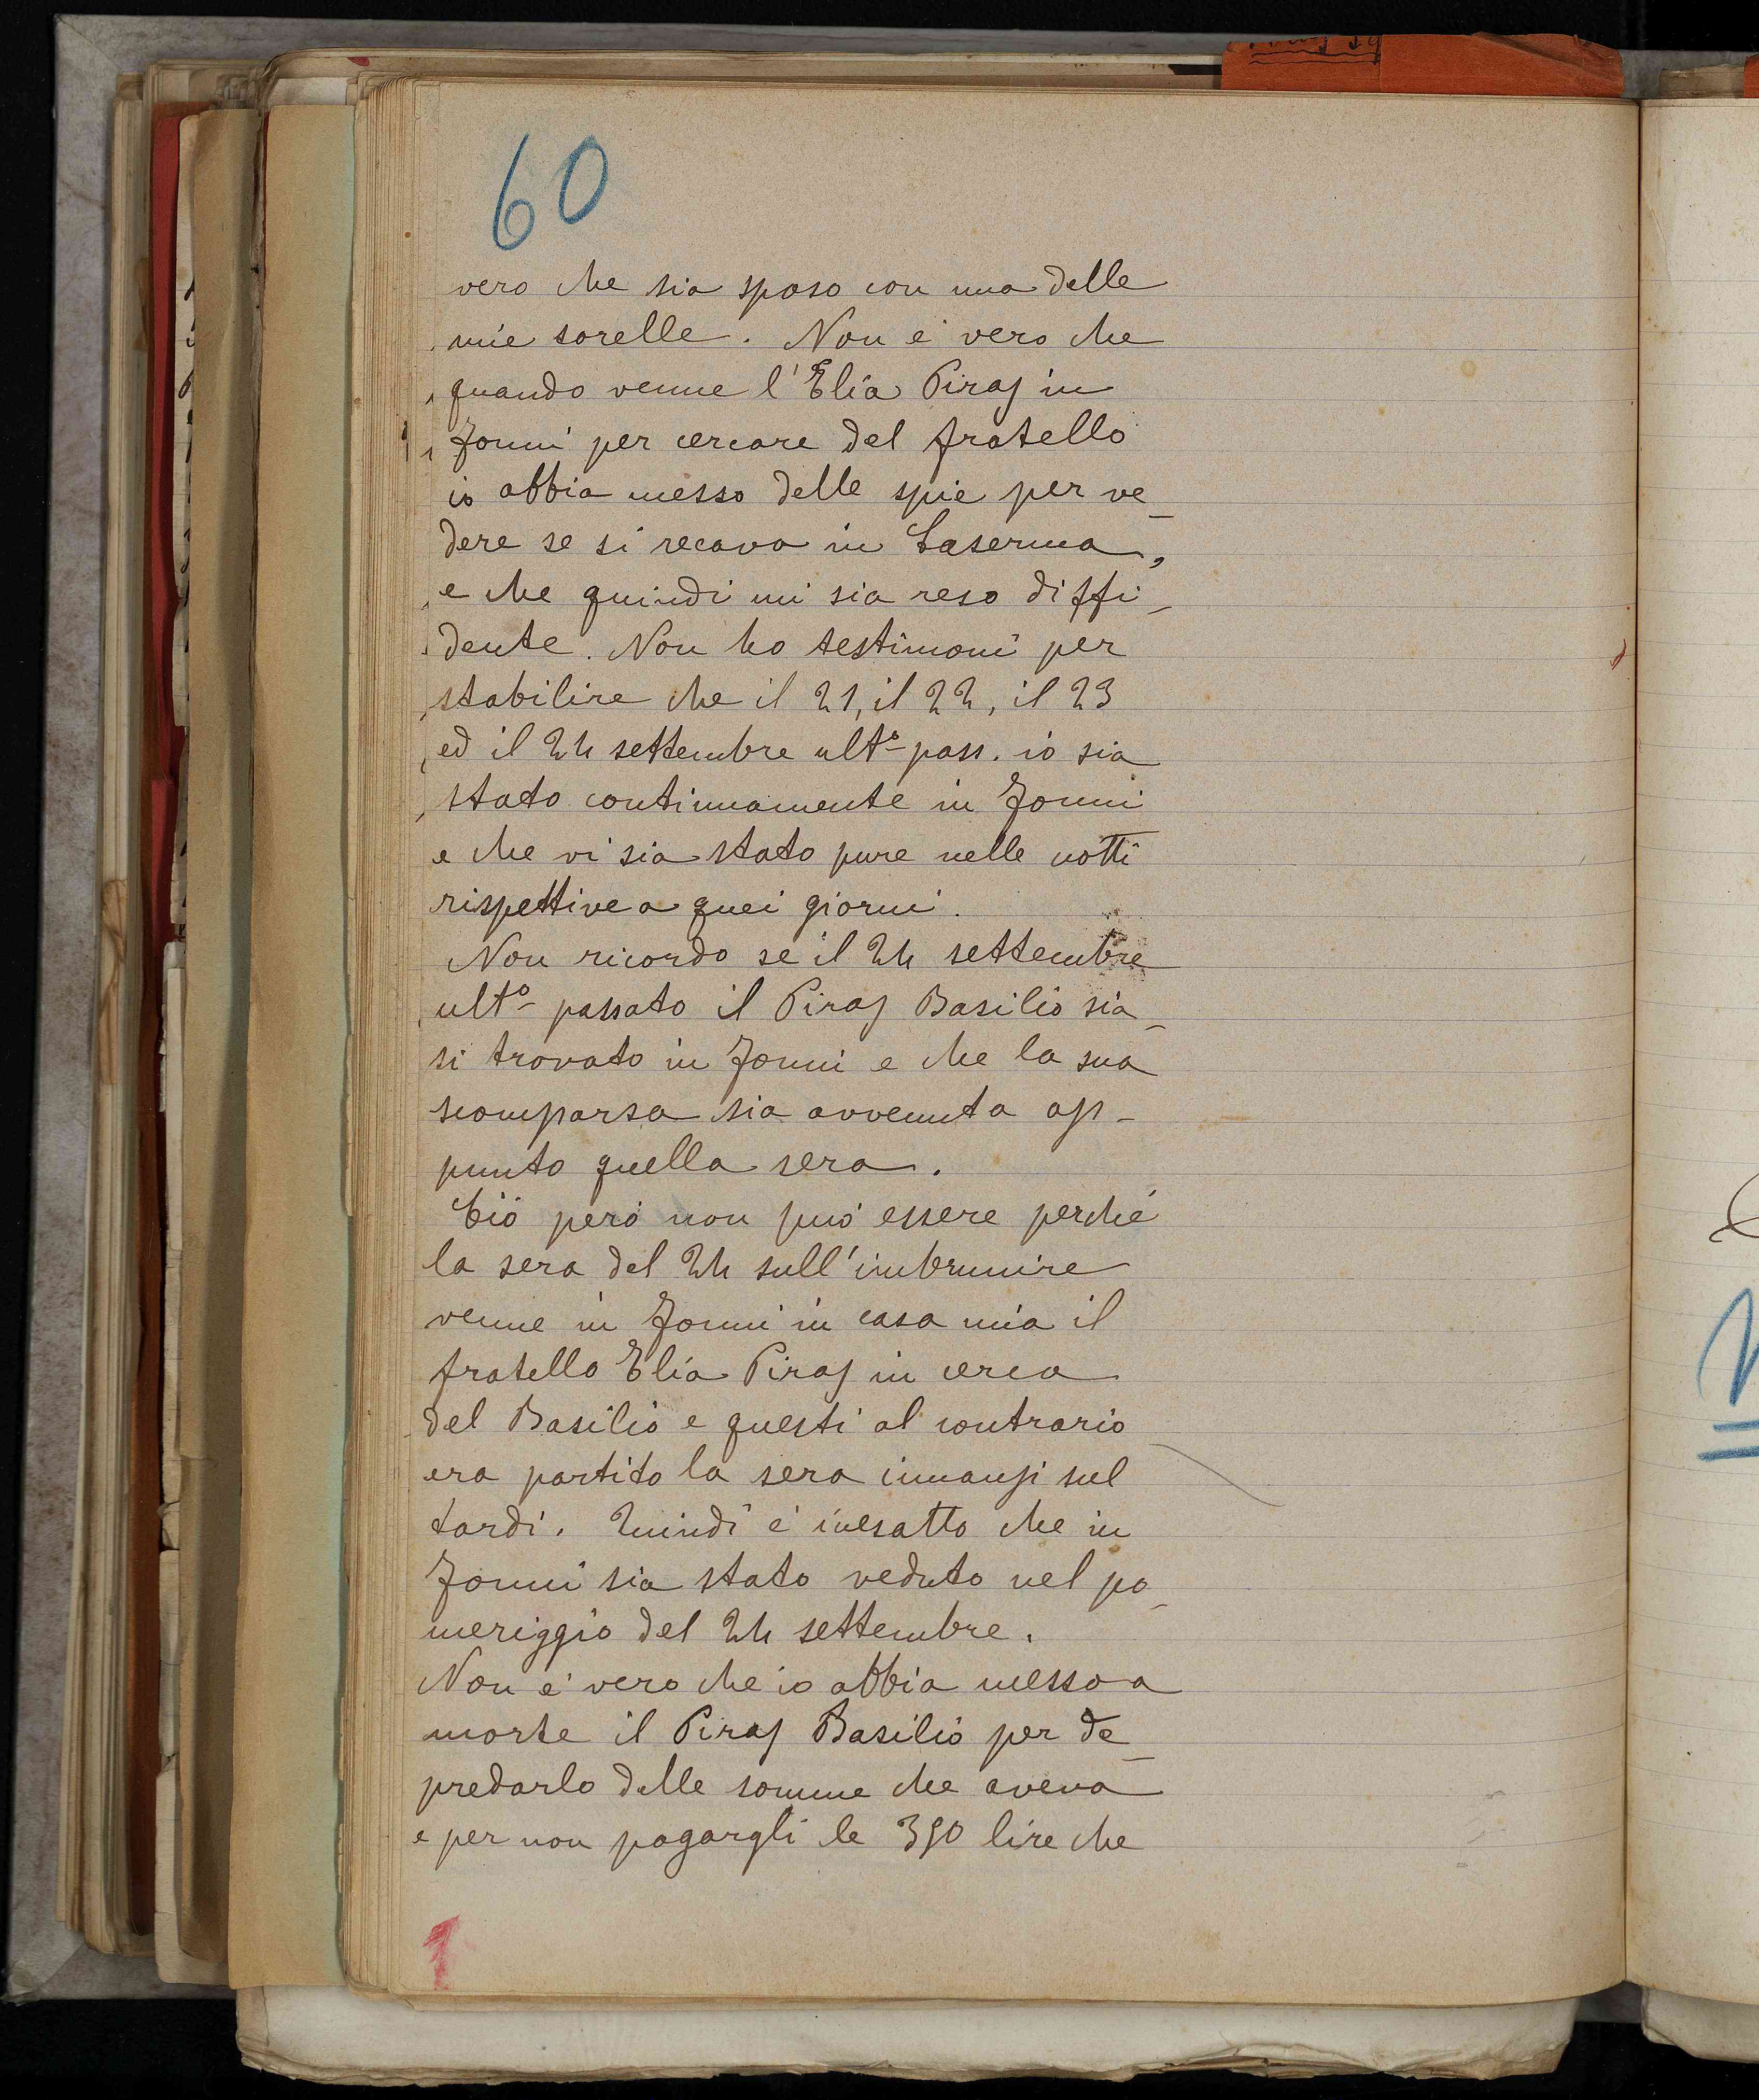 60
vero che sia sposo con una delle
mie sorelle. Non è vero che
quando venne l'Elia Piras in
Fonni per cercare del fratello
io abbia messo delle spie per ve_
dere se si recava in Caserma,
e che quindi mi sia reso diffi_
dente. Non ho testimoni per
stabilire che il 21, il 22, il 23
ed il 24 settembre ult° pass. io sia
stato continuamente in Fonni
e che vi sia stato pure nelle notti
rispettive a quei giorni.
Non ricordo se il 24 settembre
ult° passato il Piras Basilio sia_
si trovato in Fonni e che la sua
scomparsa sia avvenuta ap_
punto quella sera.
Ciò però non può essere perché
la sera del 24 sull'imbrunire
venne in Fonni in casa mia il
fratello Elia Piras in cerca
del Basilio e questi al contrario
era partito la sera innanzi sul
tardi. Quindi è inesatto che in
Fonni sia stato veduto nel po_
meriggio del 24 settembre.
Non è vero che io abbia messo a
morte il Piras Basilio per de_
predarlo delle somme che aveva
e per non pagargli le 350 lire che
1